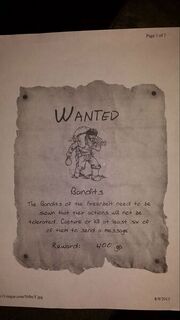 Page 1 of 1
WANTED
Bandits
The Bandits of the Greenbelt need to be
shown that their actions will not be
tolerated. Capture or kill at least six of
of them to send a message
Reward: 400 gp